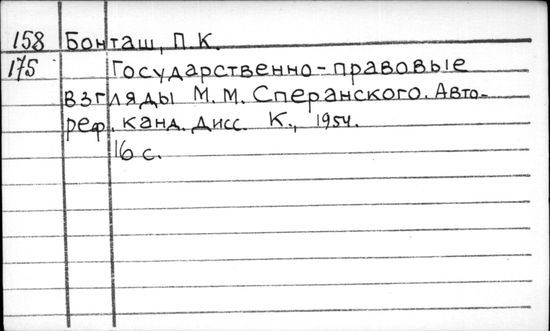 158 Бонташ, П.К.
175 Государственно-правовые
взгляды М.М. Сперанского. Авто-
реф. канд. дисс. К., 1954.
16 с.